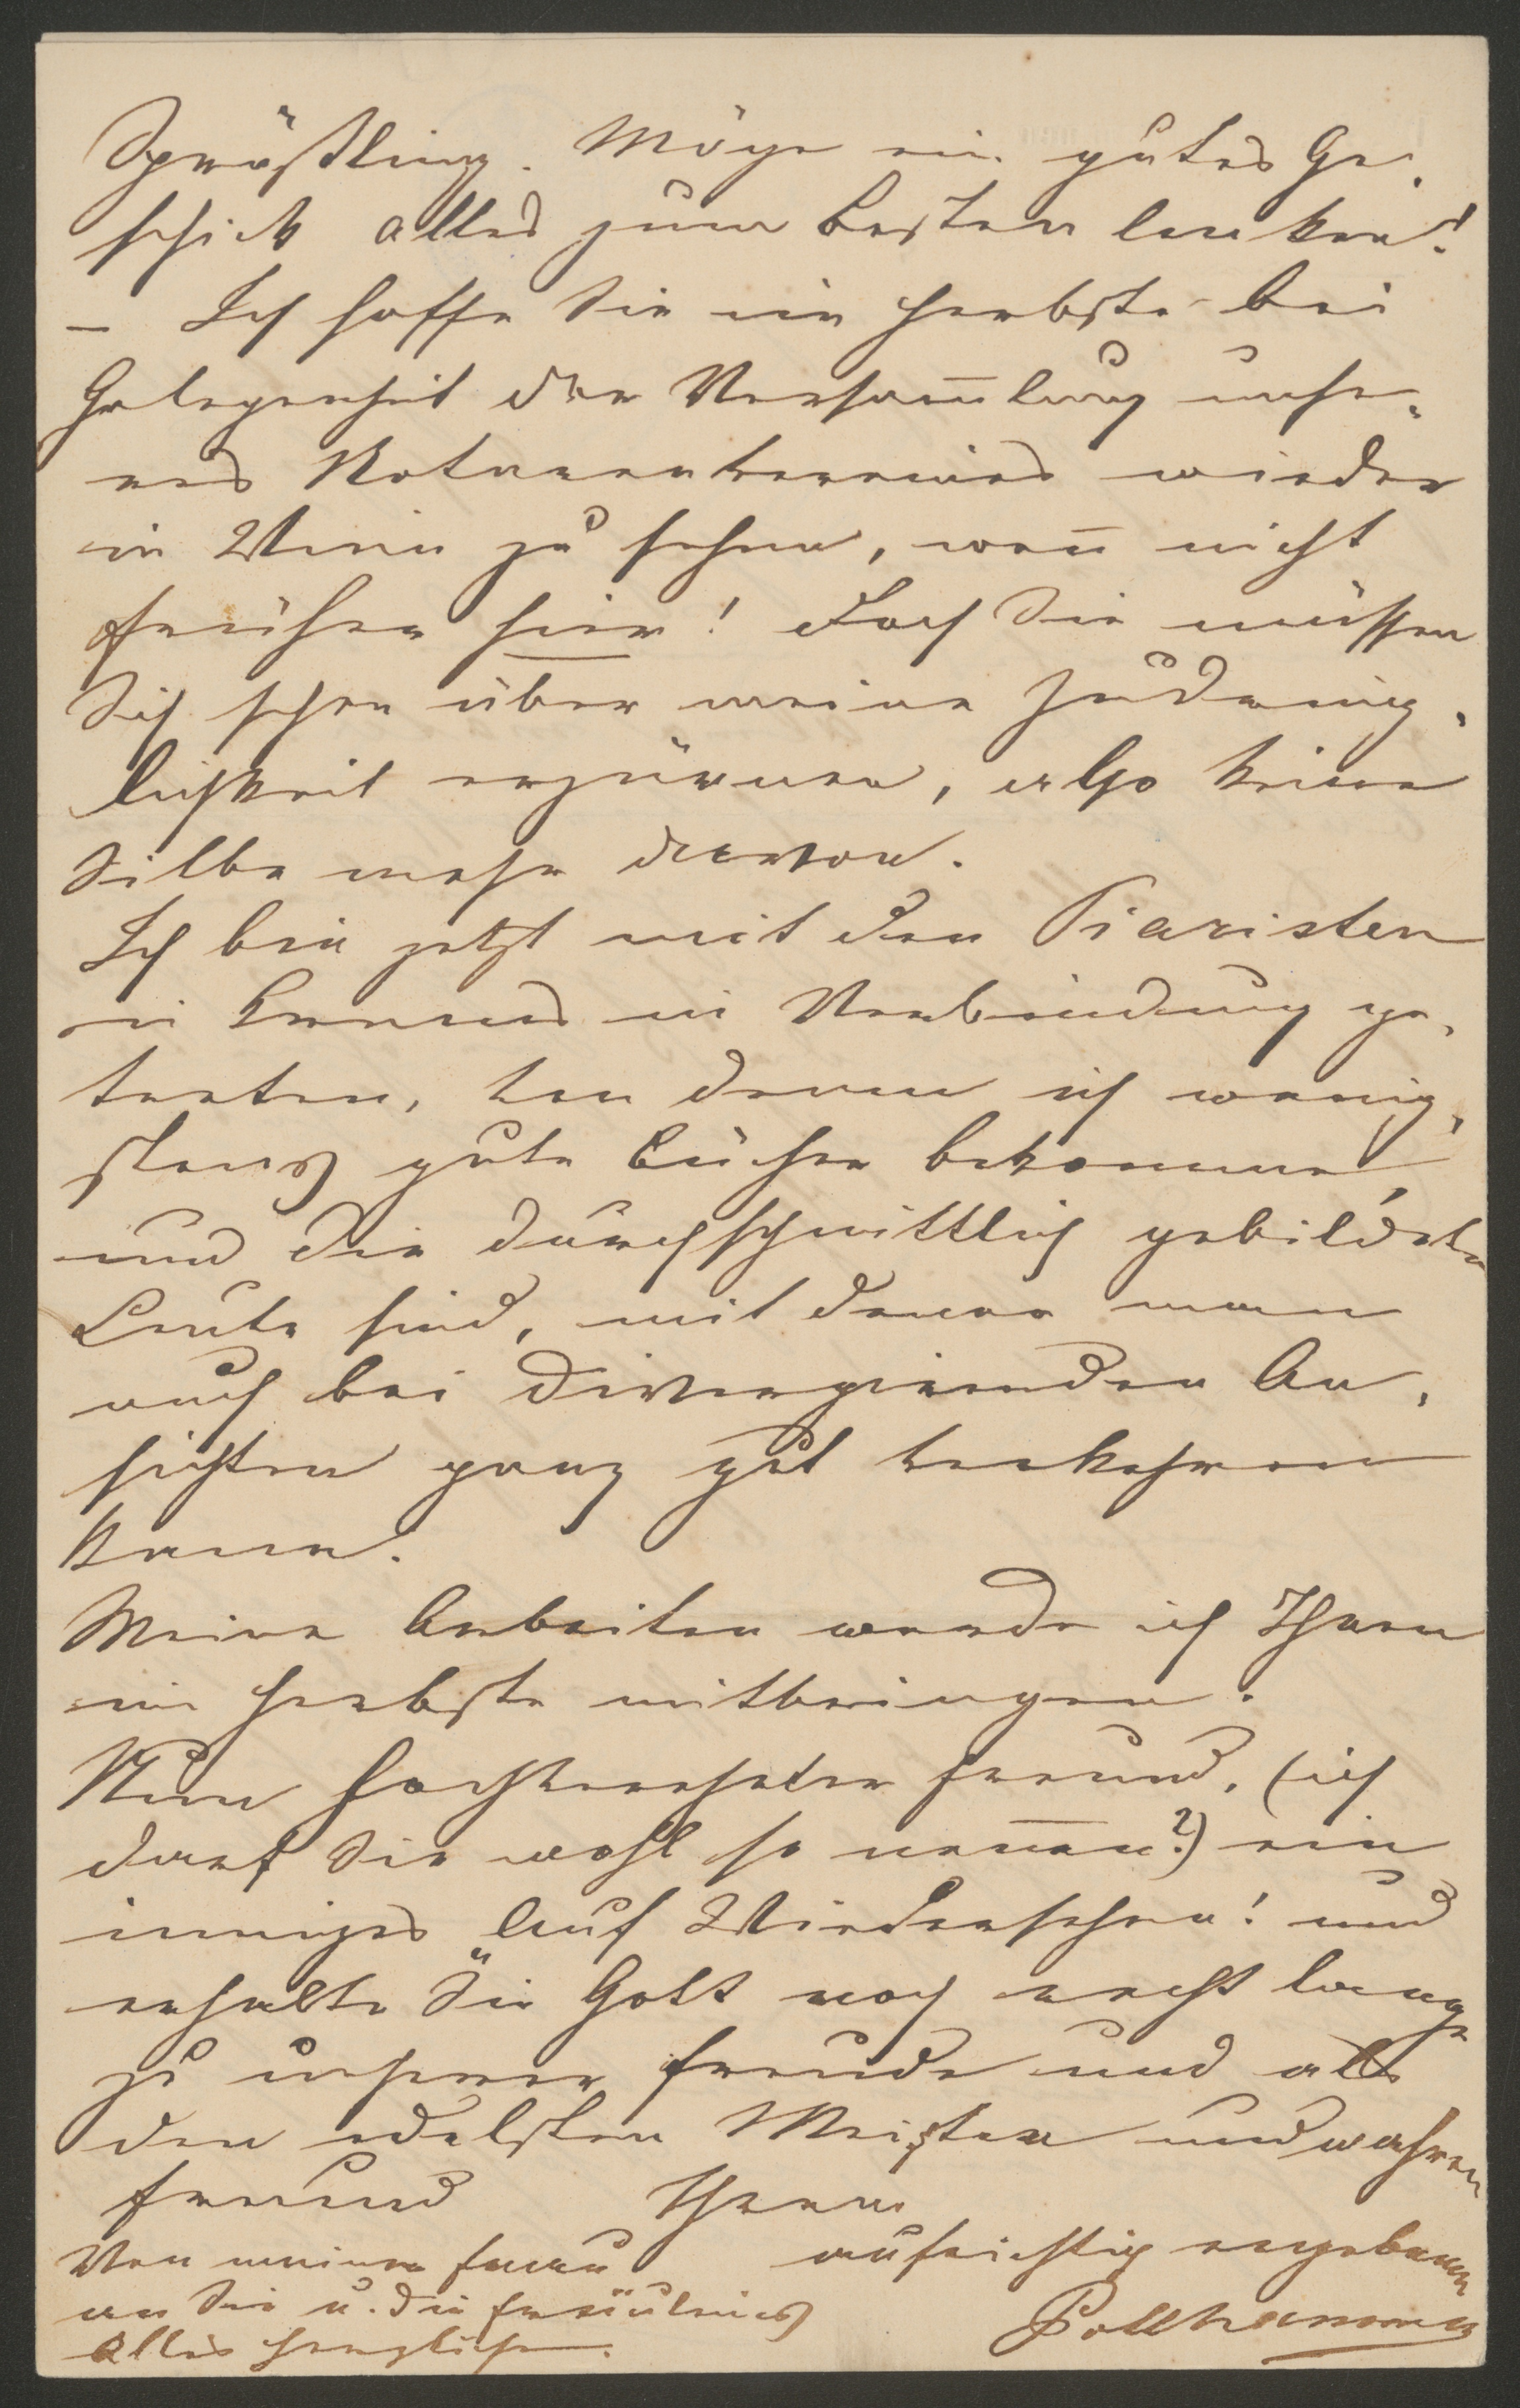 Sprößling. Möge ein gutes Ge-
schick alles zum Besten lenken!
– Ich hoffe Sie im Herbste bei
Gelegenheit der Versam̅lung unse-
res Notarenvereines wieder
in Wien zu sehen, wen̅ nicht
früher hier! Doch Sie müssen
Sich schon über meine Zudring-
lichkeit erzürnen, also keine
Silbe mehr davon.
Ich bin jetzt mit den Piaristen
in Krems in Verbindung ge-
treten, von denen ich wenig-
stens gute Bücher bekomme,
und die durchschnittlich gebildete
Leute sind, mit denen man
auch bei divergirenden An-
sichten ganz gut verkehren
kann.
Meine Arbeiten werde ich Ihnen
im Herbste mitbringen.
Nun hochverehrter Freund, (ich
darf Sie wohl so nen̅en?) ein
inniges „Auf Wiedersehen! und
erhalte Sie Gott noch recht lange
zu unserer Freude und als
den edelsten Meister und wahren
Freund Ihren
aufrichtig ergebenen
Pollhammer
Von meiner Frau
an Sie u. die Fräuleins
alles Herzliche.